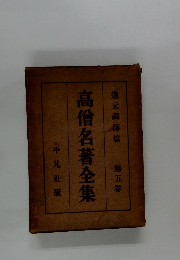 道元禪師篇 第五卷
高僧名著全集
平凡社版